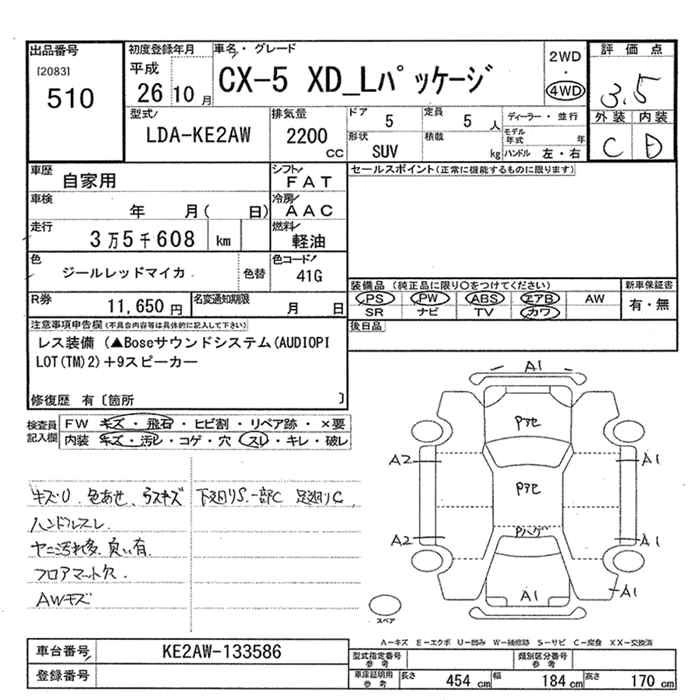 出品番号
[2083]
510
初度登録年月
平成
26 10 月
車名・グレード
CX-5 XD_Lパッケージ
2WD
・
4WD
評価点
3.5
外装 内装
C D
型式
LDA-KE2AW
排気量
2200
CC
ドア
5
定員
5 人
形状
SUV
積載
kg
ディーラー・並行
モデル年式 年
ハンドル 左・右
車歴
自家用
シフト
FAT
車検
年 月( 日)
冷房
AAC
走行
3万5千608 km
燃料
軽油
色
ジールレッドマイカ
色替
色コード
41G
R券
11,650 円
名変通知期限
月 日
セールスポイント(正常に機能するものに限ります)
装備品 (純正品に限り○をつけてください)
新車保証書
PS PW ABS エアB AW
有・無
SR ナビ TV カワ
後日品
注意事項申告欄(不具合内容等は具体的に記入して下さい)
レス装備 (▲Boseサウンドシステム(AUDIOPI
LOT(TM)2)+9スピーカー
修復歴 有〔箇所 〕
検査員記入欄
FW キズ・飛石・ヒビ割・リペア跡・×要
内装 キズ・汚レ・コゲ・穴・スレ・キレ・破レ
キズU 色あせ、ラスキズ
下廻りS.一部C 足廻りC
ハンドルスレ
ヤニ汚れ多、臭い有
フロアマット欠
AWキズ
A1
Pアセ
A2
A1
Pアセ
Pハゲ
A2
A1
A1
A1
スペア
A-キズ E-エクボ U-凹み W-補修跡 S-サビ C-腐食 XX-交換済
車台番号
KE2AW-133586
登録番号
型式指定番号
参考
類別区分番号
参考
車庫証明用
参考
長さ 454 cm
幅 184 cm
高さ 170 cm